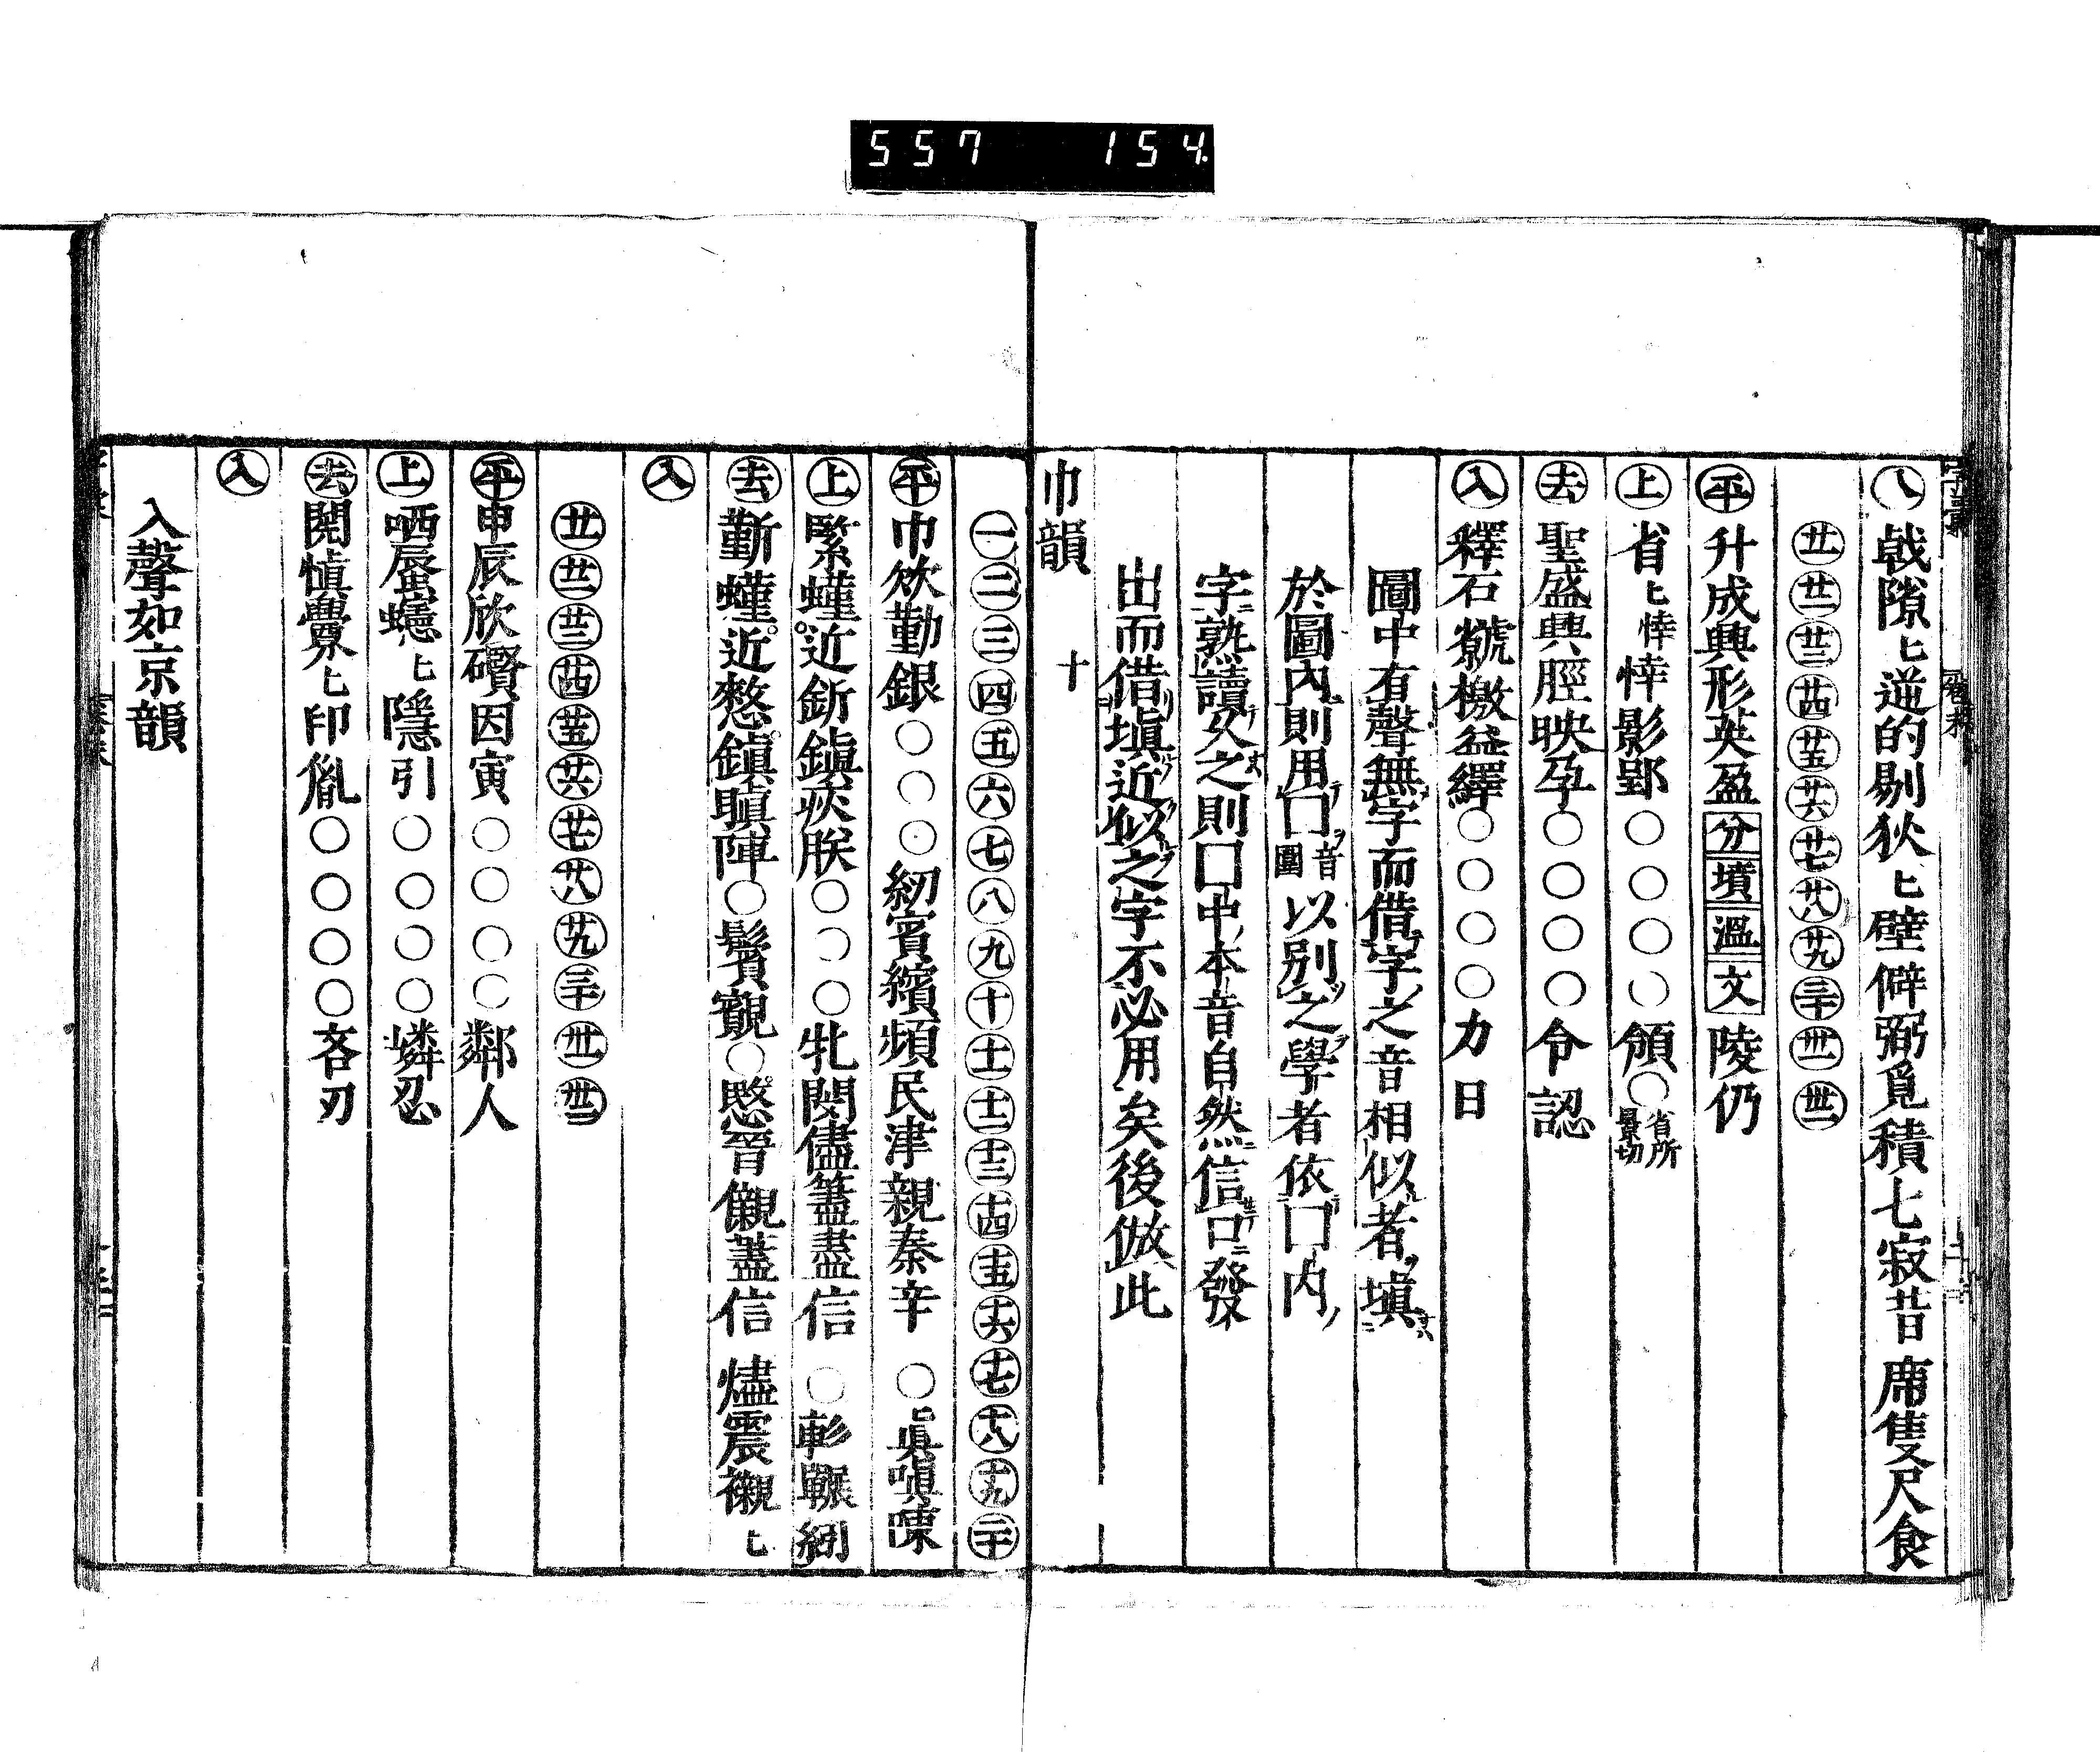 557 154
㊅戟隙匕逆的剔狄匕壁僻弼覓積七寂昔席隻尺食
廿一 廿二 廿三 廿四 廿五 廿六 廿七 廿八 廿九 三十 卅一 卅二
平升成興形英盈分墳溫文陵仍
上省匕悻悻影郢〇〇〇〇領〇省所景切
去聖盛興脛映孕〇〇〇〇令認
入釋石虩檄益繹〇〇〇〇力日
圖中有聲無字而借字之音相似者填
於圖內則用囗音圍以別之學者依囗內
字熟讀久之則囗中本音自然信口發
出而借填近似之字不必用矣後倣此
巾韻 十
一 二 三 四 五 六 七 八 九 十 十一 十二 十三 十四 十五 十六 十七 十八 十九 二十
平巾欽勤銀〇〇〇紉賓繽頻民津親秦辛〇匕眞嗔陳
上緊螼近釿鎮疢朕〇〇〇牝閔儘𥂁盡信〇軫輾紖
去靳螼近憖鎭瞋陣〇鬢䫬〇愍晉儭藎信燼震襯匕
入
廿一 廿二 廿三 廿四 廿五 廿六 廿七 廿八 廿九 三十 卅一 卅二
平申辰欣礥因寅〇〇〇〇鄰人
上哂蜃蠁匕隱引〇〇〇〇嶙忍
去閔愼釁匕印胤〇〇〇〇吝刃
入
入聲如京韻